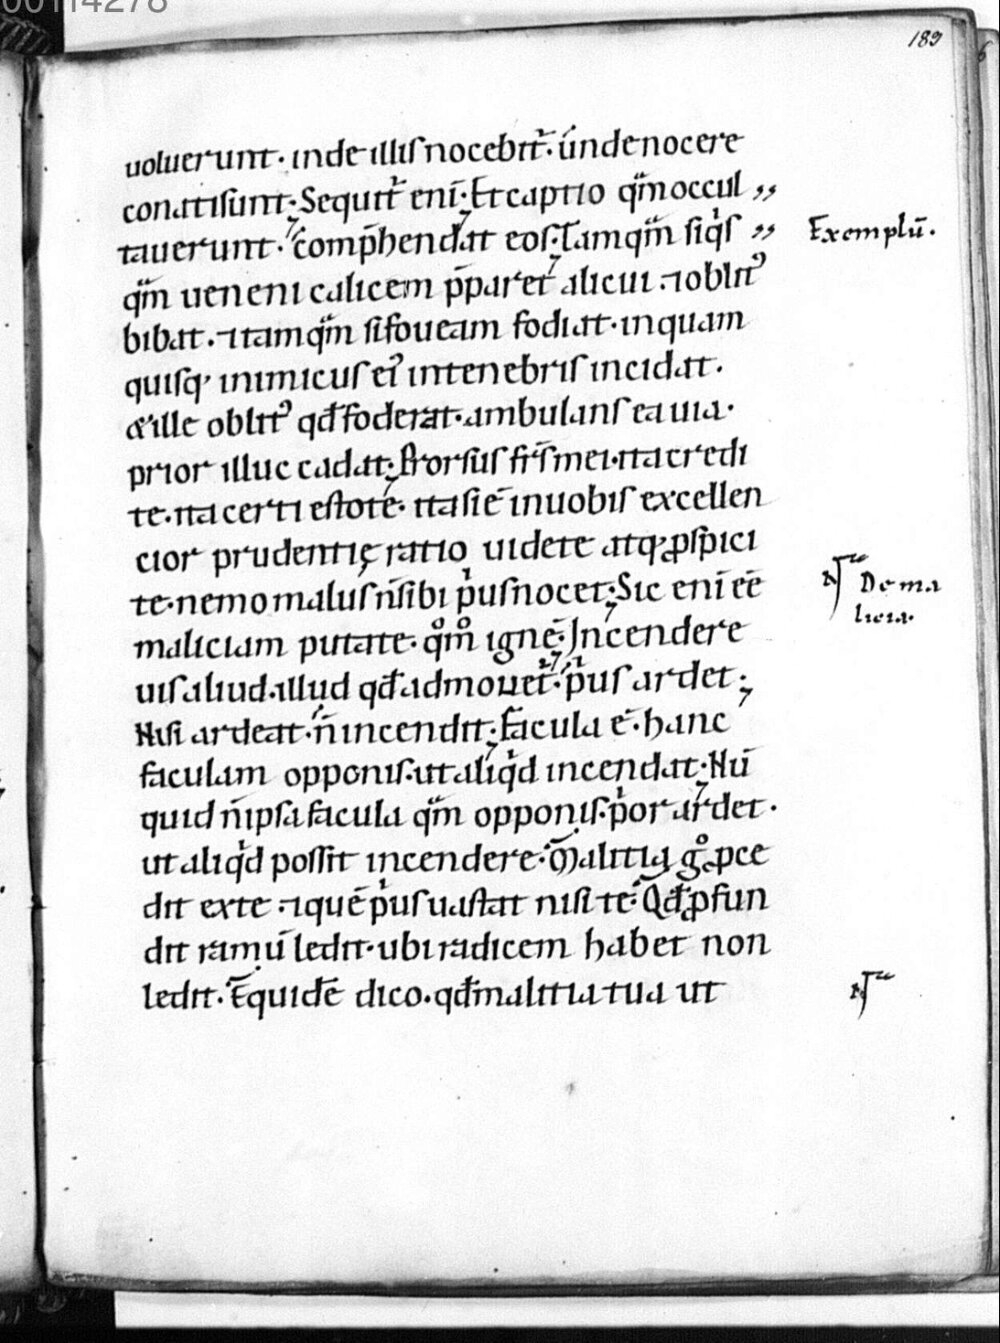 00114278
189
uoluerunt· inde illis nocebit̄· unde nocere
conati sunt; Sequit̄ eni̅; Et captio qͣm occul ,,
tauerunt· co̅p̅hendat eos; Ta̅ qͣm siqͥs ,,
Exemplu̅.
qͣm ueneni calicem p̅paret alicui ⁊ oblitꝰ
bibat· ⁊ tamqͣm si foueam fodiat· in quam
quisq, inimicus eiꝰ in tenebris incidat.
& ille oblitꝰ qđ foderat· ambulans ea uia·
prior illuc cadat; Prorsus fr̅s mei· ita credi
te· ita certi estote· ita si e̅ in uobis excellen
cior prudentię ratio uidete atq; ꝑspici
te· nemo malus n̅ sibi pͥus nocet; Sic eni̅ ee̅
De ma
licia.
maliciam putate· qͦmͦ igne̅; Incendere
uis aliud· illud qđ admouet̄· pͥus ardet;
Nisi ardeat· n̅ incendit; facula e̅· hanc
faculam opponis· ut aliqͥd incendat; Nu̅
quid n̅ ipsa facula qͣm opponis· pͥor ardet·
ut aliqͥd possit incendere· Malitia gͦ ꝓce
dit ex te· ⁊ que̅ pͥus uastat nisi te· Qđ ꝓfun
dit ramu̅ ledit· ubi radicem habet non
ledit. Equide̅ dico· qđ malitia tua ut